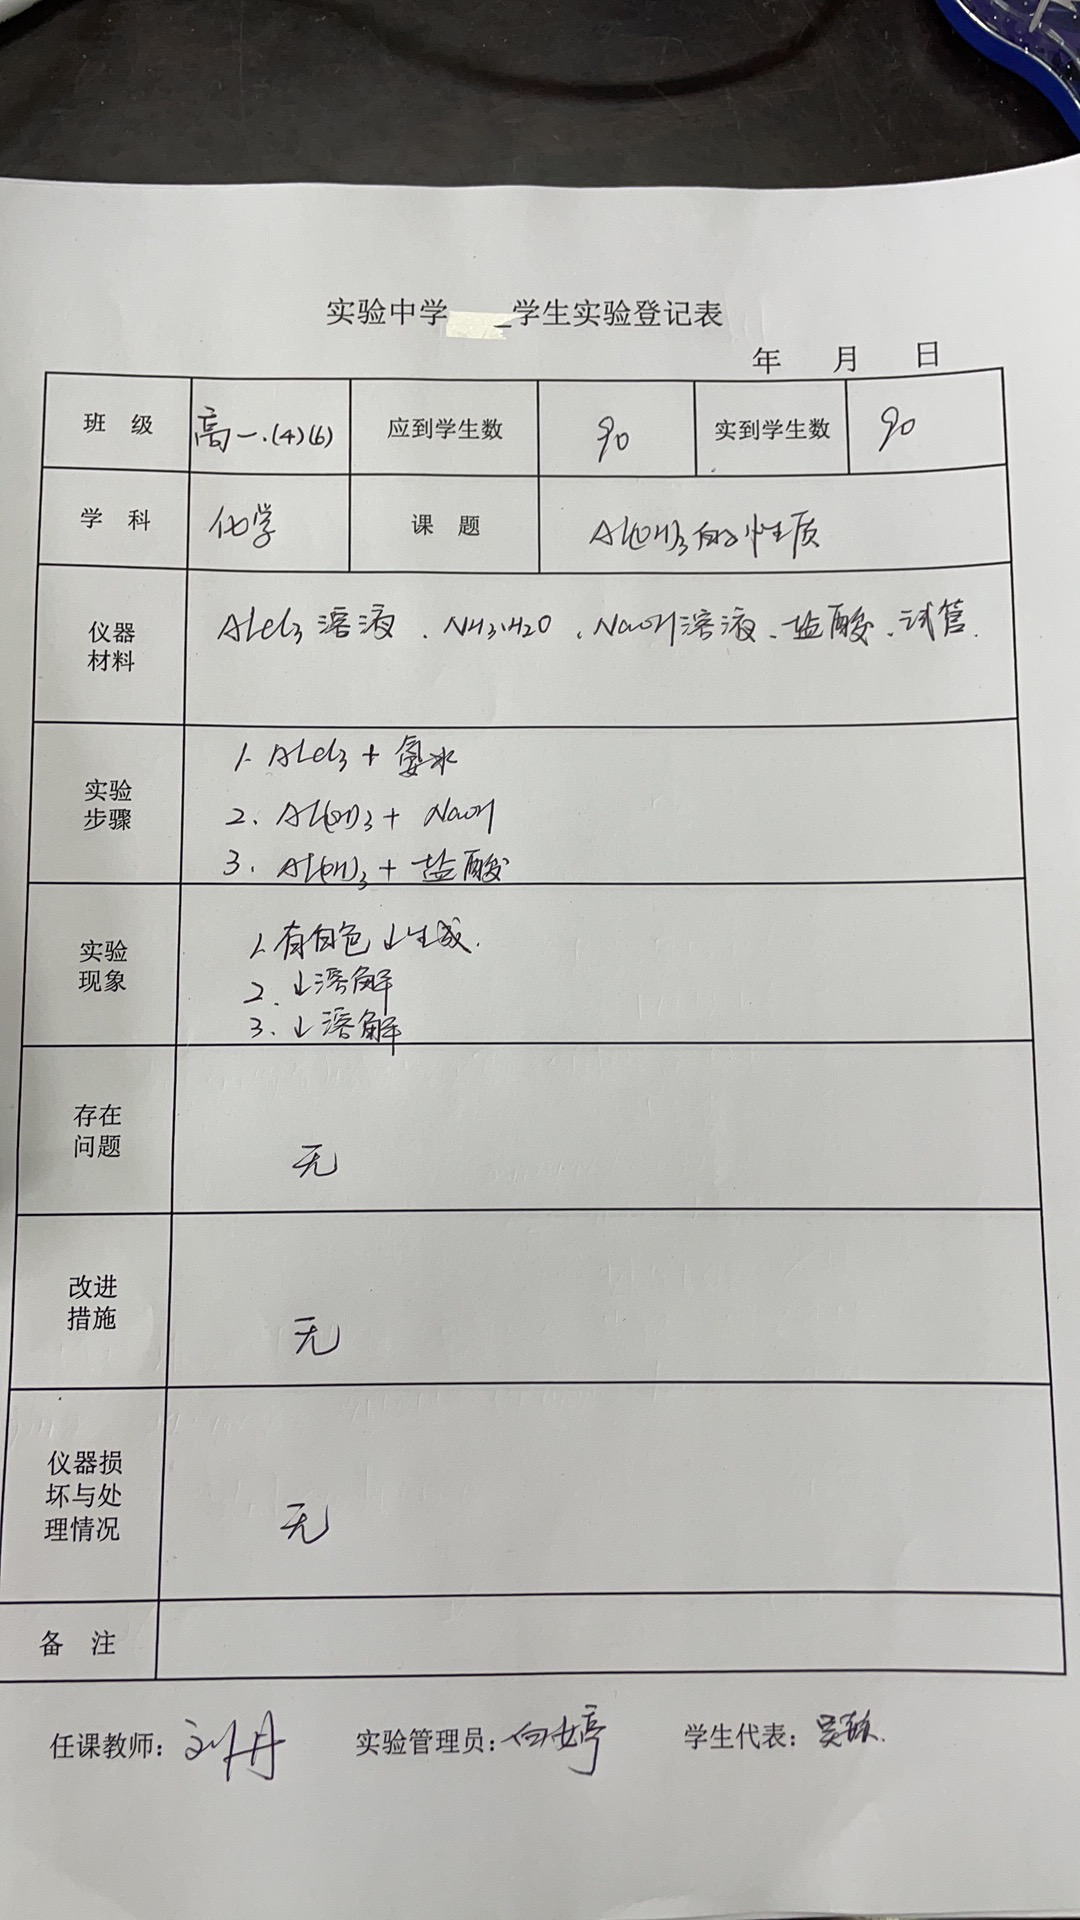 实验中学 _学生实验登记表
年 月 日
班 级 高一.(4)(6) 应到学生数 90 实到学生数 90
学 科 化学 课 题 Al(OH)3的性质
仪器 AlCl3溶液、NH3·H2O、NaOH溶液、盐酸、试管.
材料
1. AlCl3 + 氨水
实验
步骤
2. Al(OH)3 + NaOH
3. Al(OH)3 + 盐酸
1. 有白色↓生成.
实验
现象
2. ↓溶解
3. ↓溶解
存在
问题
无
改进
措施
无
仪器损
坏与处
理情况
无
备 注
任课教师: 刘丹 实验管理员: 向婷 学生代表: 吴